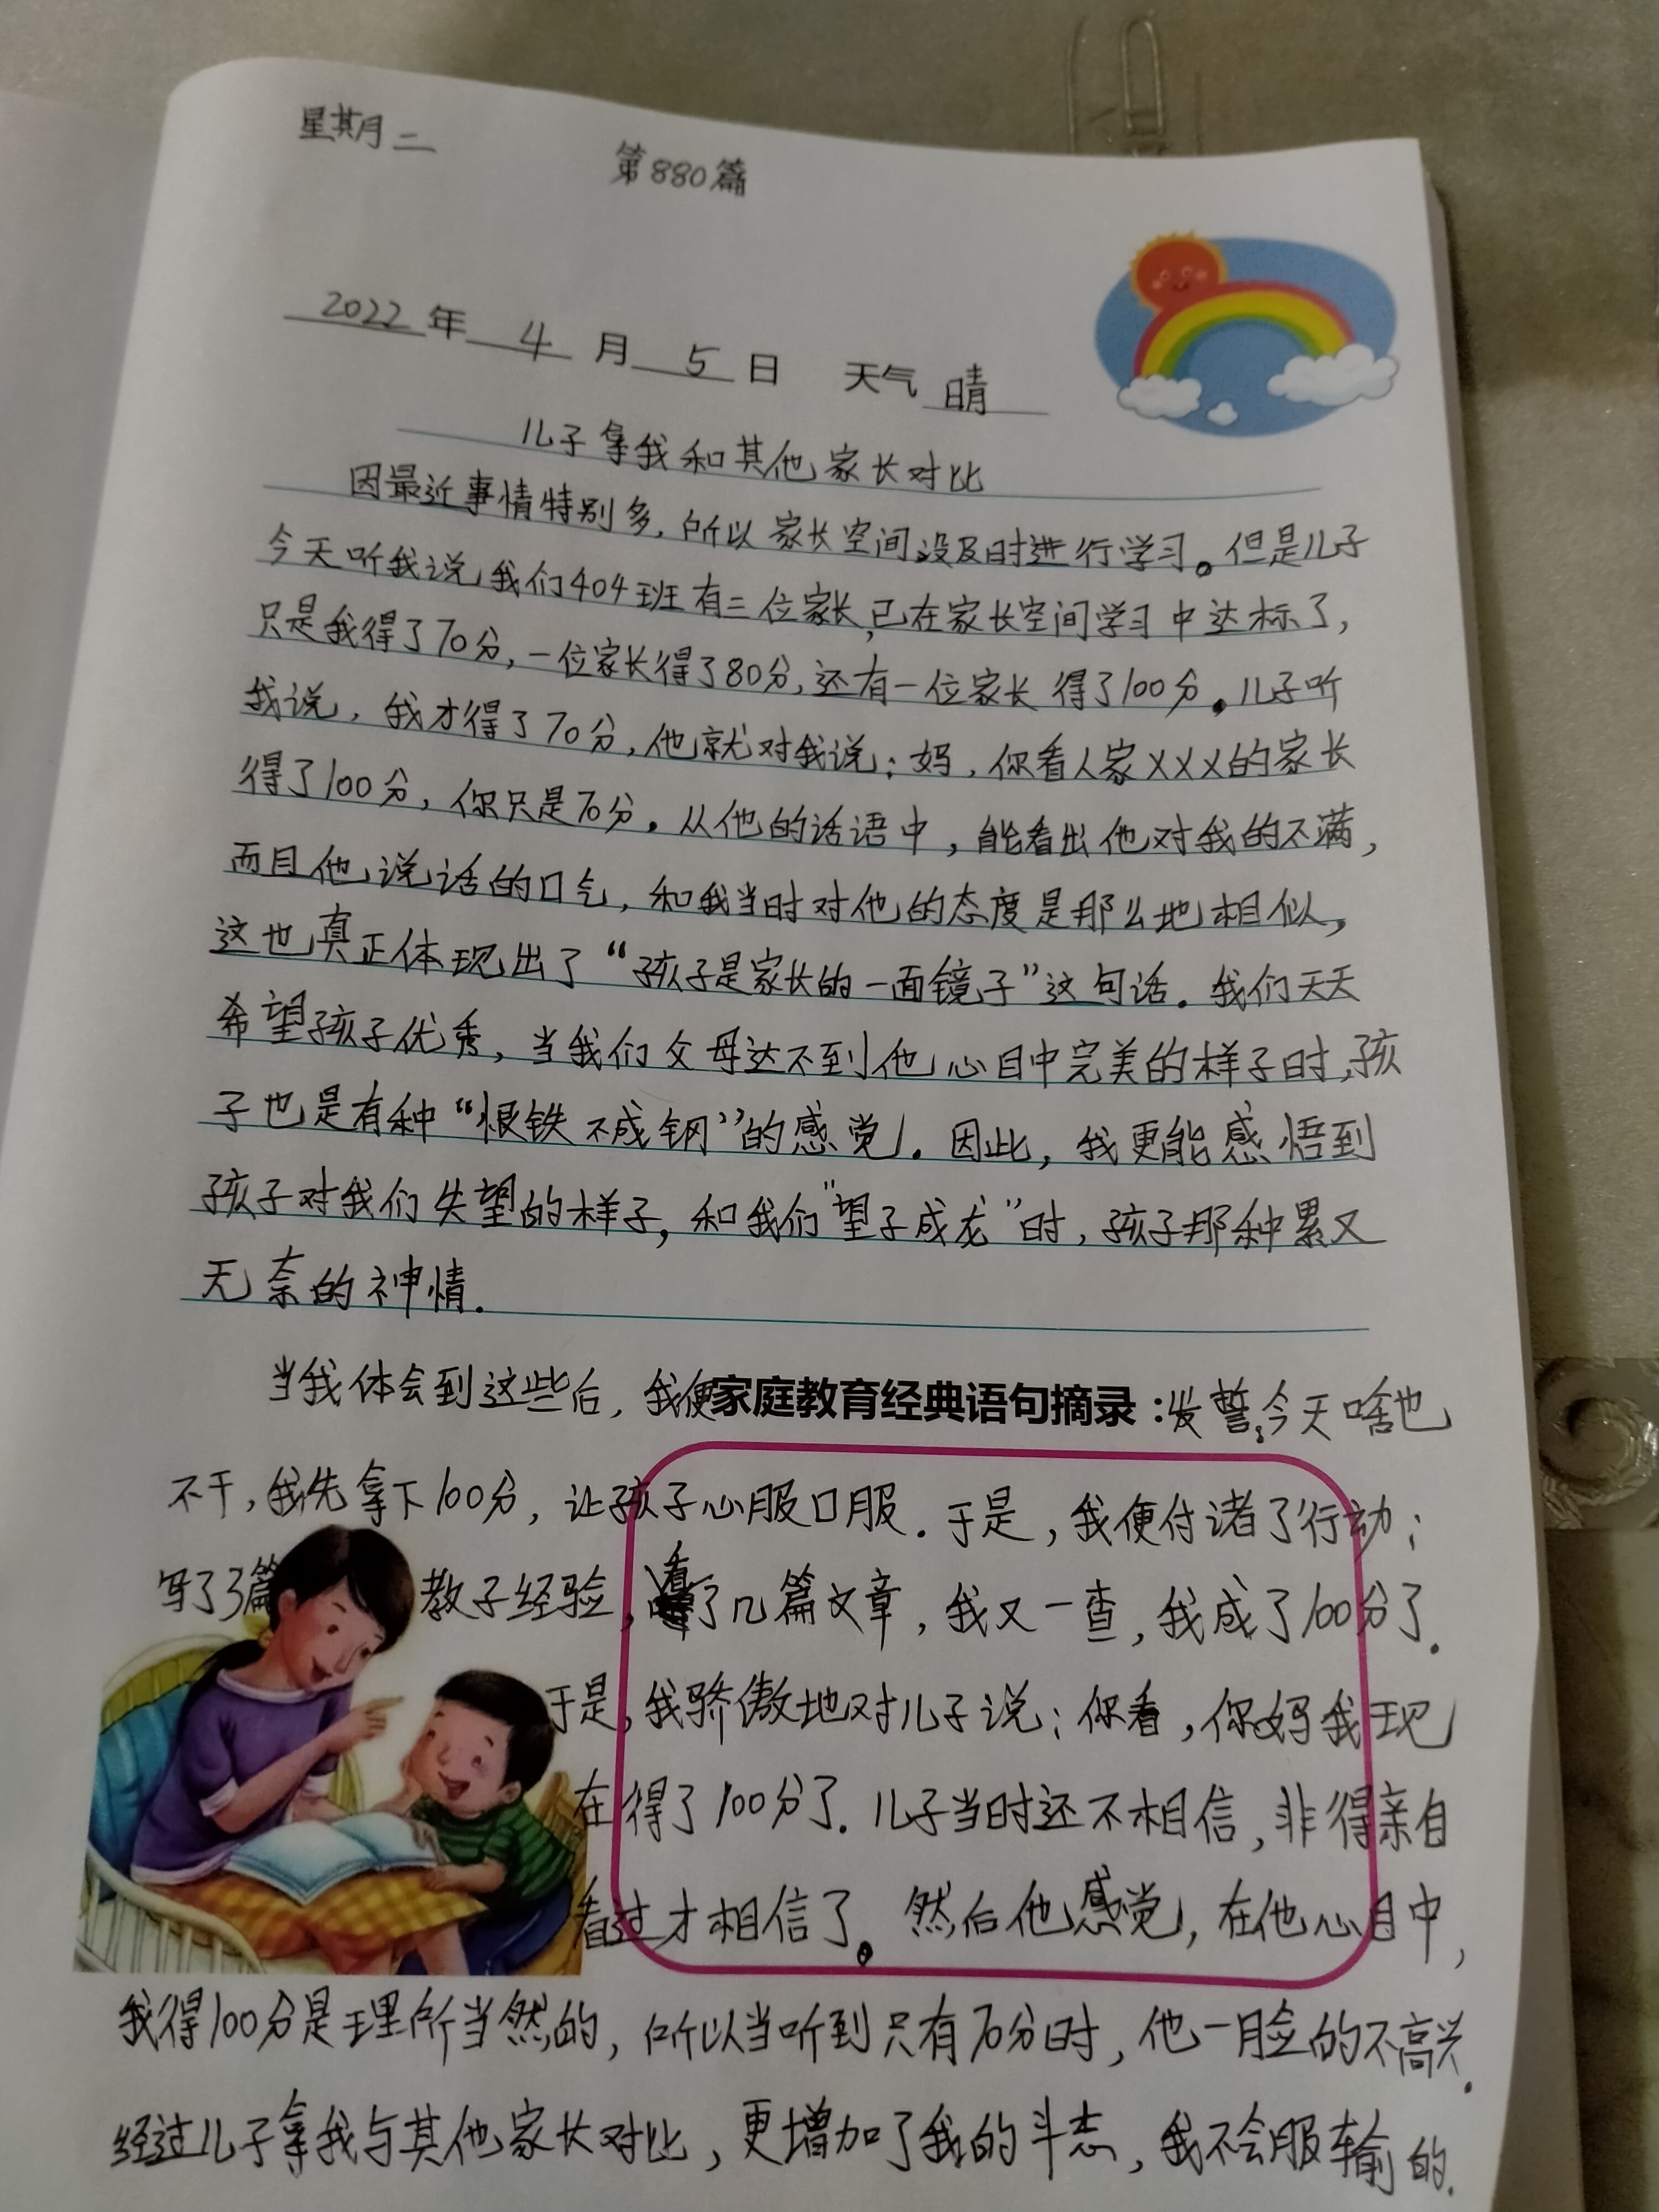 星期二
第880篇
2022年4月5日 天气晴
儿子拿我和其他家长对比
因最近事情特别多,所以家长空间没及时进行学习。但是儿子
今天听我说,我们404班有三位家长,已在家长空间学习中达标了,
只是我得了70分,一位家长得了80分,还有一位家长得了100分。儿子听
我说,我才得了70分,他就对我说:妈,你看人家XXX的家长
得了100分,你只是70分。从他的话语中,能看出他对我的不满,
而且他说话的口气,和我当时对他的态度是那么地相似,
这也真正体现出了“孩子是家长的一面镜子”这句话.我们天天
希望孩子优秀,当我们父母达不到他心目中完美的样子时,孩
子也是有种“恨铁不成钢”的感觉.因此,我更能感悟到
孩子对我们失望的样子,和我们“望子成龙”时,孩子那种累又
无奈的神情.
当我体会到这些后,我便家庭教育经典语句摘录:发誓,今天啥也
不干,我先拿下100分,让孩子心服口服.于是,我便付诸了行动;
写了3篇教子经验,看了几篇文章,我又一查,我成了100分了.
于是,我骄傲地对儿子说:你看,你妈我现
在得了100分了.儿子当时还不相信,非得亲自
看过才相信了。然后他感觉,在他心目中,
我得100分是理所当然的,所以当听到只有70分时,他一脸的不高兴.
经过儿子拿我与其他家长对比,更增加了我的斗志,我不会服输的.